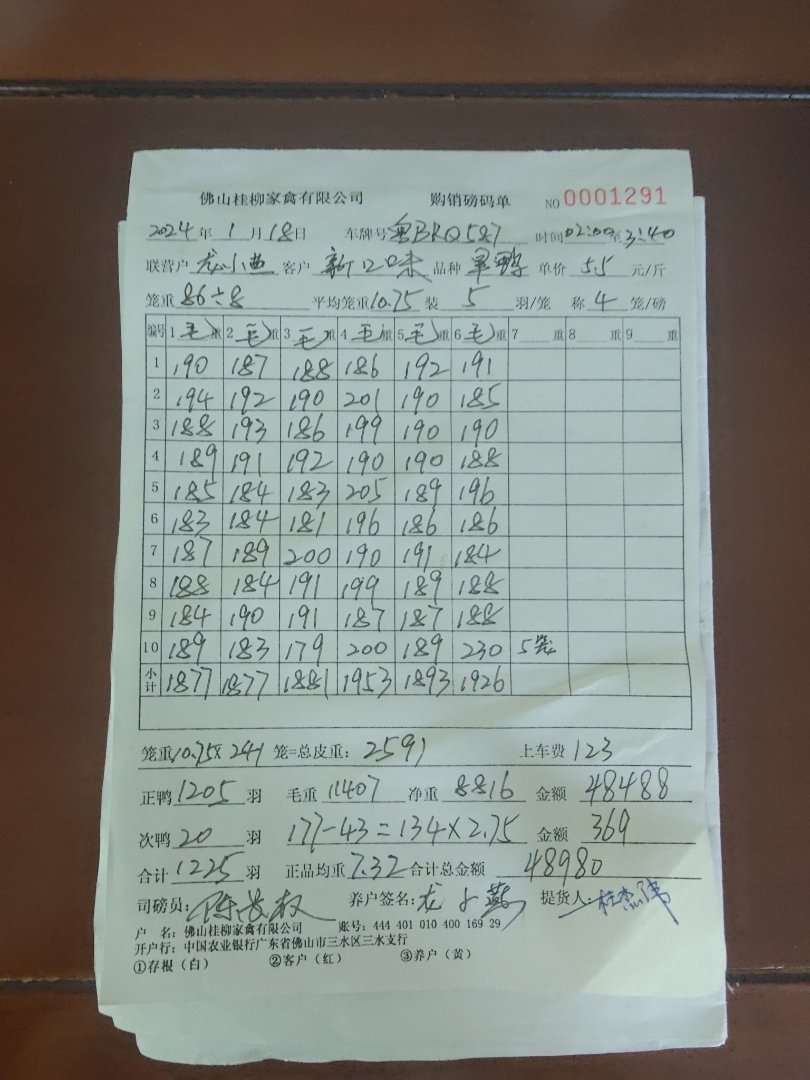 佛山桂柳家禽有限公司 购销磅码单 NO 0001291
2024年1月18日 车牌号 粤BKQ587 时间02:00至3:40
联营户 龙小燕 客户 新口味 品种 单价 5.5 元/斤
笼重 86÷8 平均笼重10.75 装 5 羽/笼 称 4 笼/磅
编号 1 毛重 2 毛重 3 毛重 4 毛重 5 毛重 6 毛重 7 重 8 重 9 重
1 190 187 188 186 192 191
2 194 192 190 201 190 185
3 188 193 186 199 190 190
4 189 191 192 190 190 188
5 185 184 183 205 189 196
6 183 184 181 196 186 186
7 187 189 200 190 191 184
8 188 184 191 199 189 188
9 184 190 191 187 187 188
10 189 183 179 200 189 230 5笼
小计 1877 1877 1881 1953 1893 1926
笼重10.75×241 笼=总皮重：2591 上车费 123
正鸭1205羽 毛重 11407 净重 8816 金额 48488
次鸭20羽 177-43=134×2.75 金额 369
合计1225羽 正品均重7.32 合计总金额 48980
司磅员： 养户签名：龙小燕 提货人：
户 名：佛山桂柳家禽有限公司 账号：444 401 010 400 169 29
开户行：中国农业银行广东省佛山市三水区三水支行
①存根（白） ②客户（红） ③养户（黄）